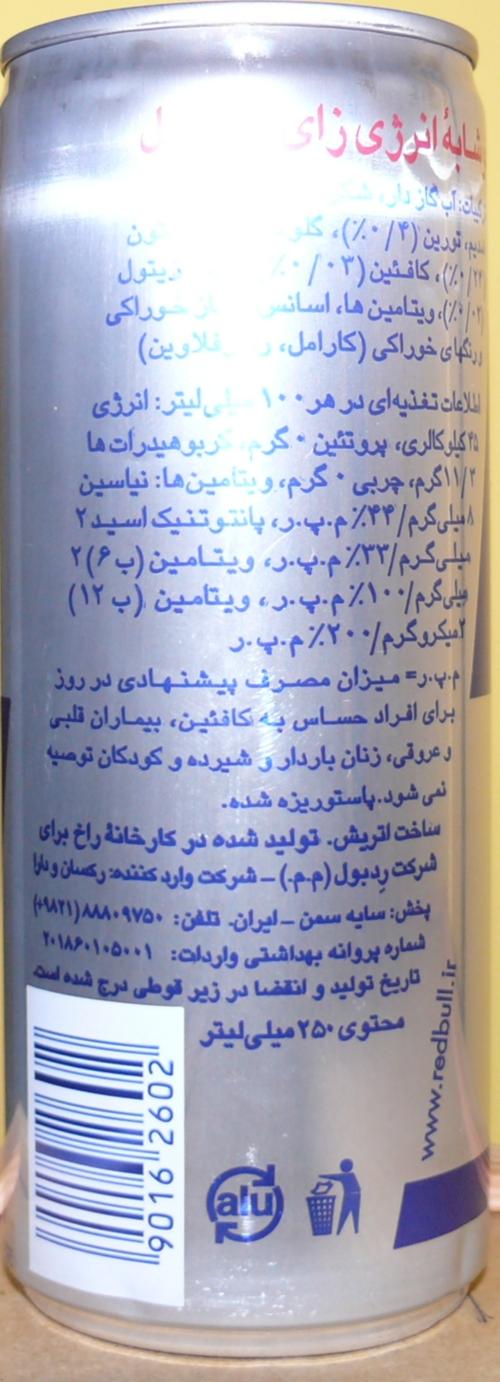 انرژی زای
آب گاز دار، شکر
تورین (۰/۴٪)،
کافئین (۰/۰۳
ویتامین ها، خوراکی
رنگهای خوراکی (کارامل،
اطلاعات تغذیه‌ای در هر ۱۰۰ میلی‌لیتر: انرژی
۴۵ کیلوکالری، پروتئین ۰ گرم، کربوهیدرات‌ها
۱۱/۳ گرم، چربی ۰ گرم، ویتامین‌ها: نیاسین
۸ میلی‌گرم/۴۴٪ م.پ.ر، پانتوتنیک اسید ۲
میلی‌گرم/۳۳٪ م.پ.ر، ویتامین (ب ۶) ۲
میلی‌گرم/۱۰۰٪ م.پ.ر، ویتامین (ب ۱۲)
۲ میکروگرم/۲۰۰٪ م.پ.ر
م.پ.ر= میزان مصرف پیشنهادی در روز
برای افراد حساس به کافئین، بیماران قلبی
و عروقی، زنان باردار و شیرده و کودکان توصیه
نمی شود. پاستوریزه شده.
ساخت اتریش. تولید شده در کارخانهٔ راخ برای
شرکت ردبول (م.م.) – شرکت وارد کننده: رکسان و دارا
پخش: سایه سمن – ایران. تلفن: ۸۸۸۰۹۷۵۰ (۹۸۲۱+)
شماره پروانه بهداشتی واردات: ۲۰۱۸۶۰۱۰۵۰۰۱
تاریخ تولید و انقضا در زیر قوطی درج شده است.
محتوی ۲۵۰ میلی‌لیتر
www.redbull.ir
alu
9016 2602